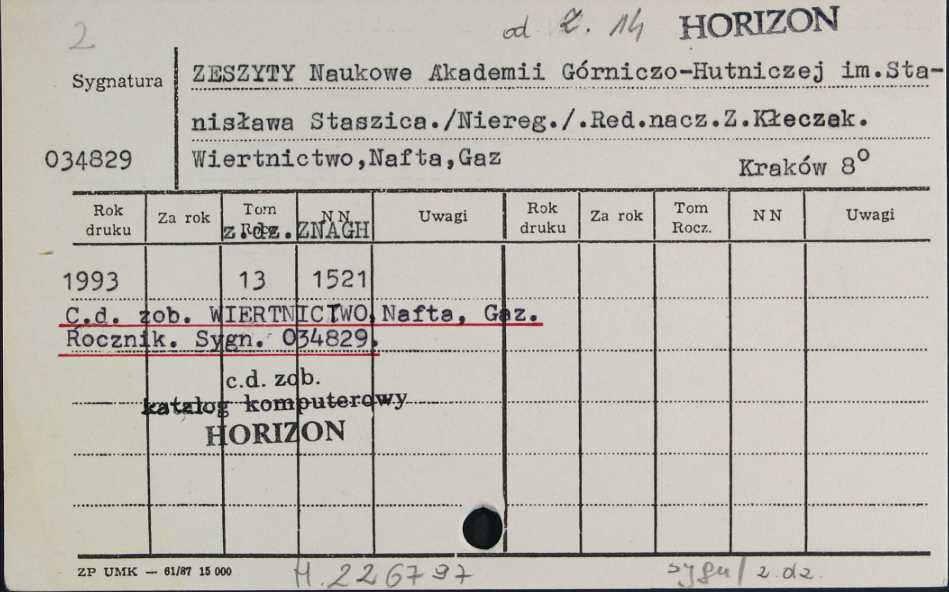 2 od z. 14 HORIZON
Sygnatura ZESZYTY Naukowe Akademii Górniczo-Hutniczej im.Sta-
nisława Staszica./Niereg./.Red.nacz.Z.Kłeczek.
034829 Wiertnictwo,Nafta,Gaz Kraków 8⁰
Rok druku Za rok Tom Rocz. N N Uwagi Rok druku Za rok Tom Rocz. N N Uwagi
z.dz. ZNAGH
1993 13 1521
C.d. zob. WIERTNICTWO,Nafta, Gaz.
Rocznik. Sygn. 034829.
c.d. zob.
katalog komputerowy
HORIZON
ZP UMK — 61/87 15 000 H.226797 sygn/z.dz.